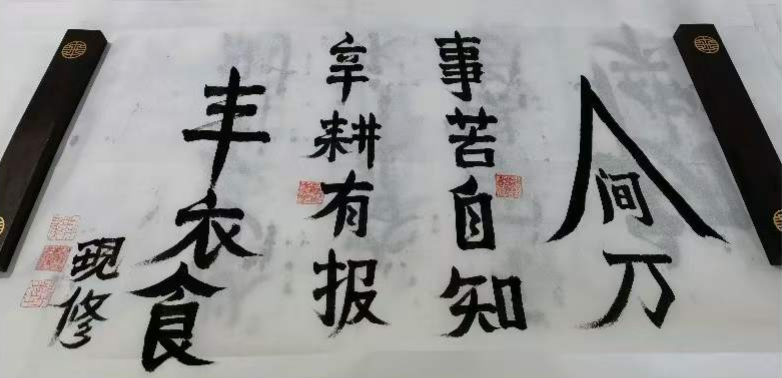 人间万
事苦自知
辛耕有报
丰衣食
砚修